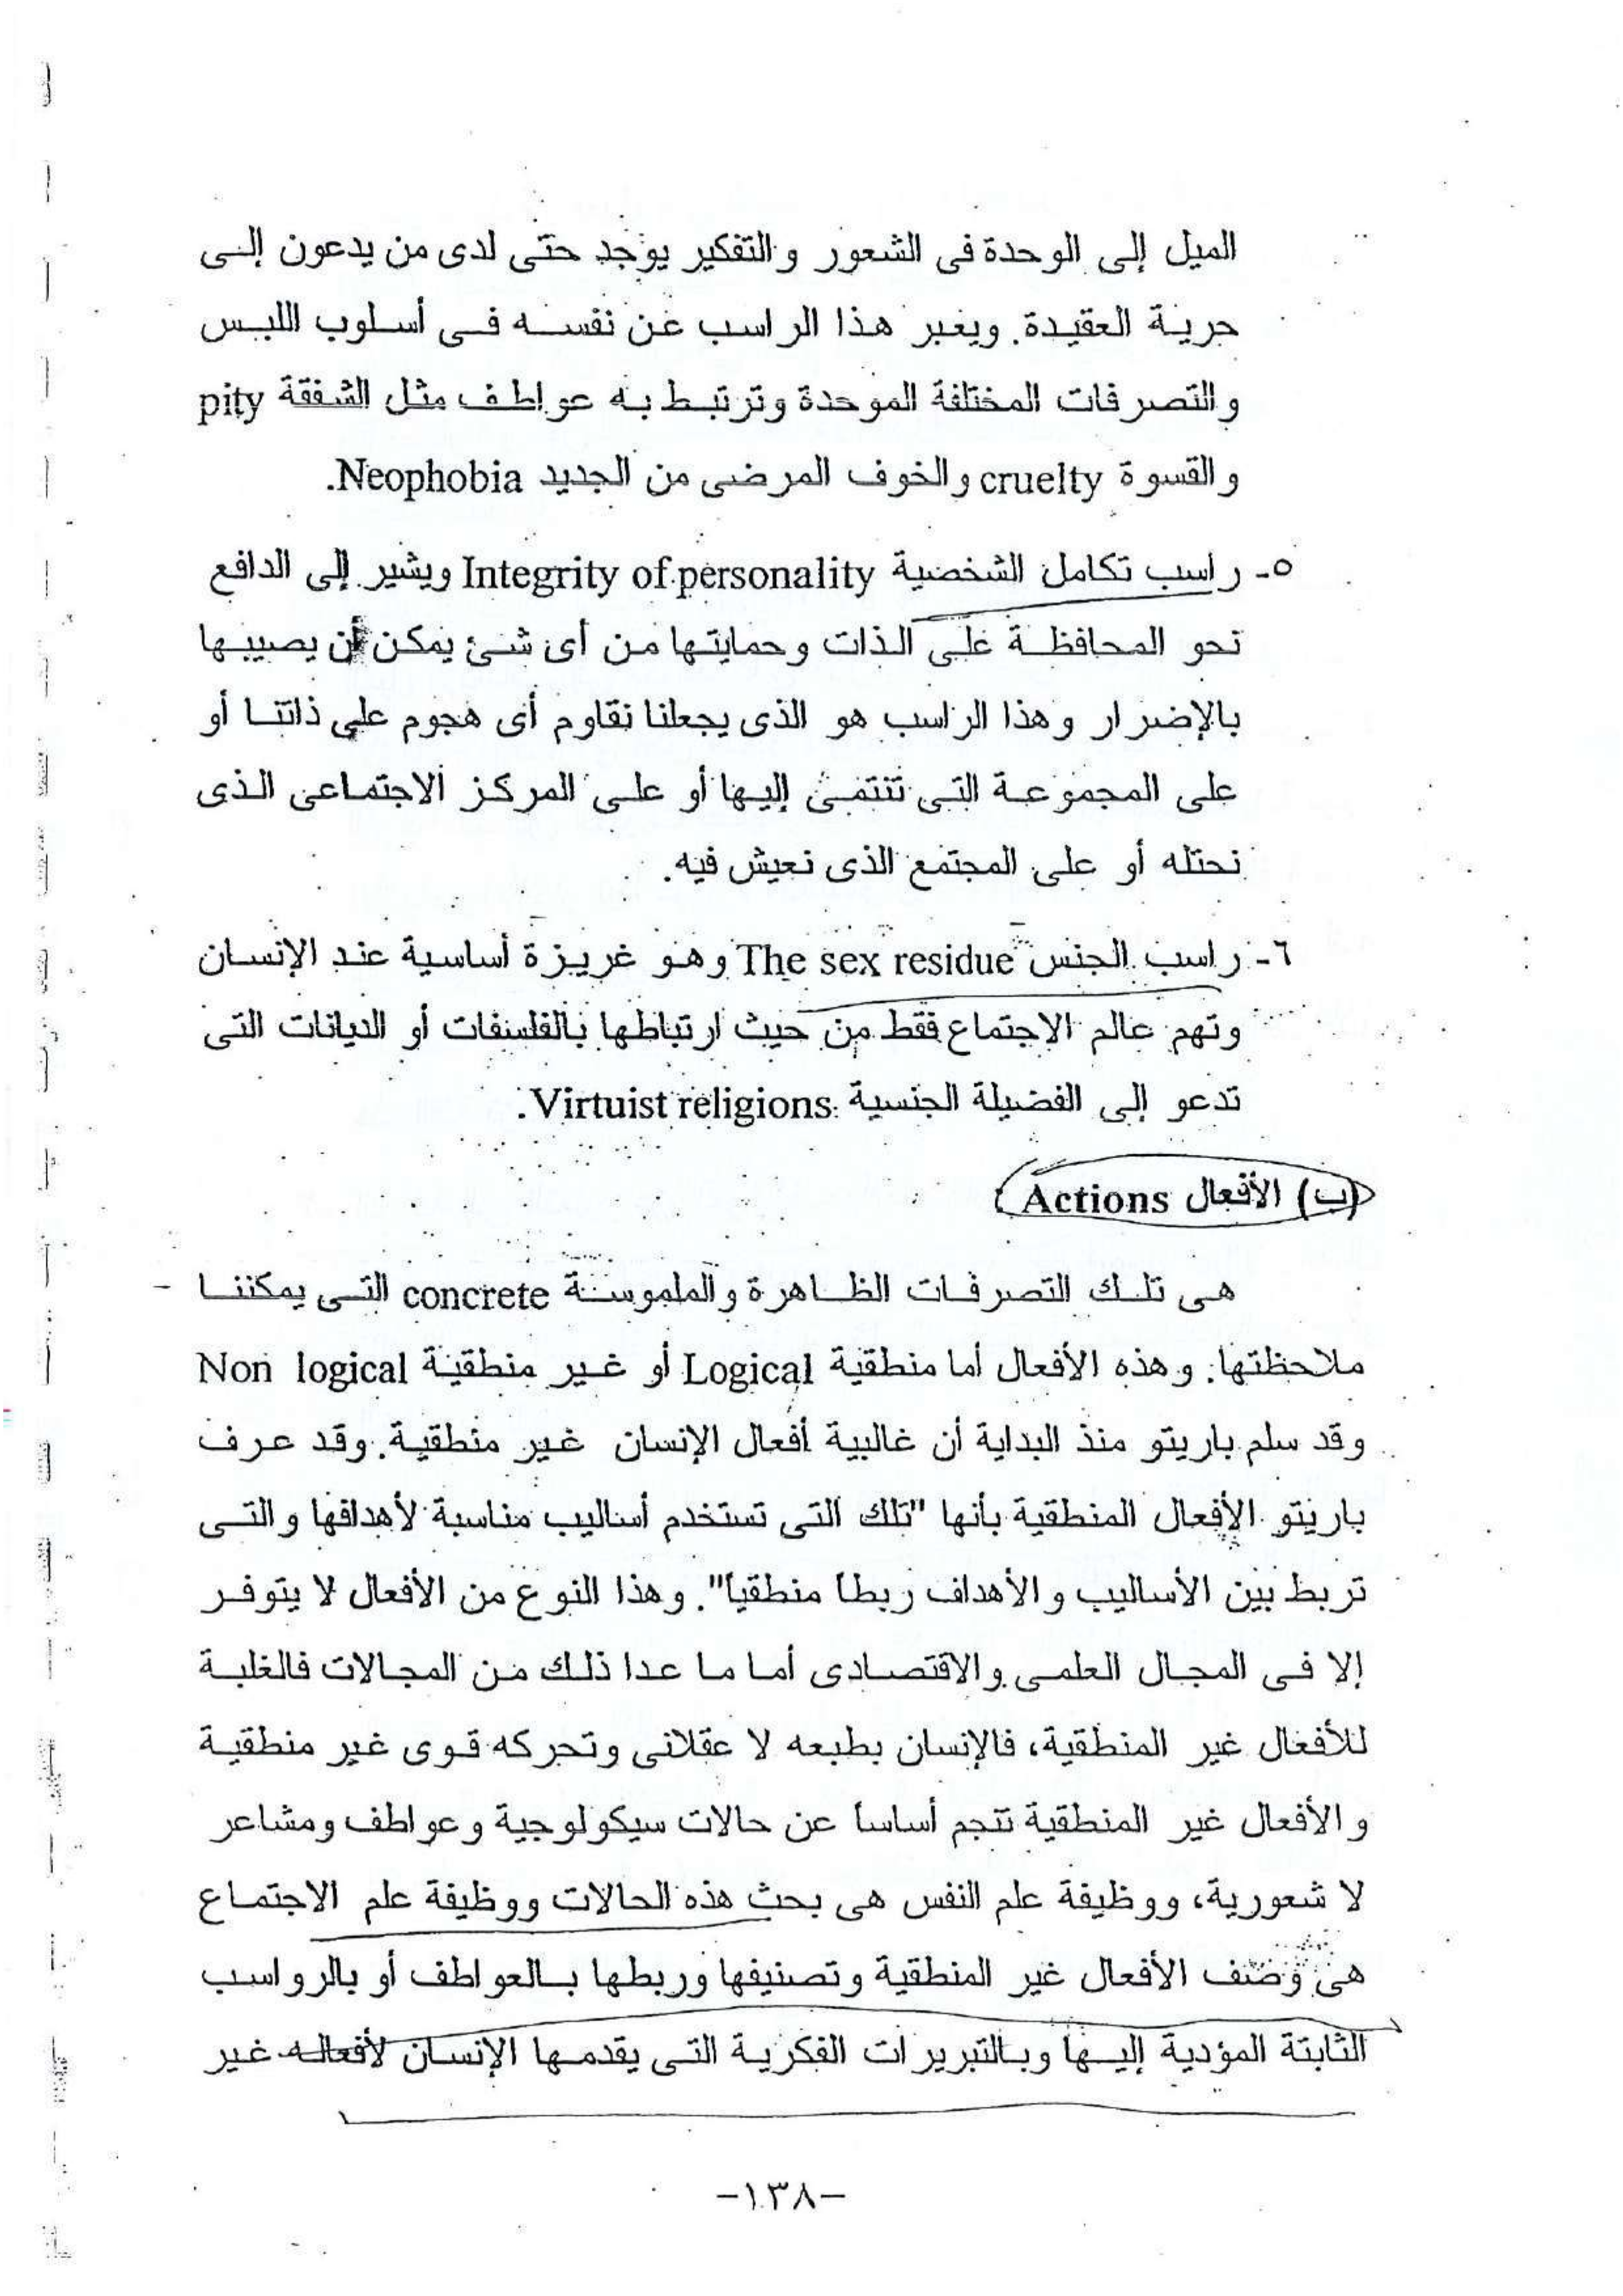 الميل إلى الوحدة فى الشعور والتفكير يوجد حتى لدى من يدعون إلى
حرية العقيدة. ويعبر هذا الراسب عن نفسه فى أسلوب اللبس
والتصرفات المختلفة الموحدة وترتبط به عواطف مثل الشفقة pity
والقسوة cruelty والخوف المرضى من الجديد Neophobia.
٥- راسب تكامل الشخصية Integrity of personality ويشير إلى الدافع
نحو المحافظة على الذات وحمايتها من أى شئ يمكن أن يصيبها
بالإضرار وهذا الراسب هو الذى يجعلنا نقاوم أى هجوم على ذاتنا أو
على المجموعة التى تنتمى إليها أو على المركز الاجتماعى الذى
نحتله أو على المجتمع الذى نعيش فيه.
٦- راسب الجنس The sex residue وهو غريزة أساسية عند الإنسان
وتهم عالم الاجتماع فقط من حيث ارتباطها بالفلسفات أو الديانات التى
تدعو إلى الفضيلة الجنسية Virtuist religions.
(ب) الأفعال Actions
هى تلك التصرفات الظاهرة والملموسة concrete التى يمكننا
ملاحظتها. وهذه الأفعال أما منطقية Logical أو غير منطقية Non logical
وقد سلم باريتو منذ البداية أن غالبية أفعال الإنسان غير منطقية. وقد عرف
باريتو الأفعال المنطقية بأنها "تلك التى تستخدم أساليب مناسبة لأهدافها والتى
تربط بين الأساليب والأهداف ربطا منطقياً". وهذا النوع من الأفعال لا يتوفر
إلا فى المجال العلمى والاقتصادى أما ما عدا ذلك من المجالات فالغلبة
للأفعال غير المنطقية، فالإنسان بطبعه لا عقلانى وتحركه قوى غير منطقية
والأفعال غير المنطقية تنجم أساساً عن حالات سيكولوجية وعواطف ومشاعر
لا شعورية، ووظيفة علم النفس هى بحث هذه الحالات ووظيفة علم الاجتماع
هى وصف الأفعال غير المنطقية وتصنيفها وربطها بالعواطف أو بالرواسب
الثابتة المؤدية إليها وبالتبريرات الفكرية التى يقدمها الإنسان لأفعاله غير
-١٣٨-